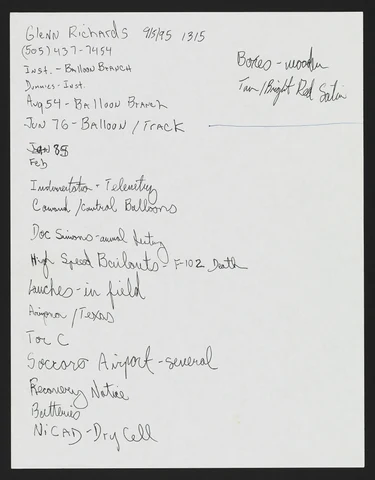 Glenn Richards 9/5/95 1315
(505) 437-7454
Inst. - Balloon Branch
Dummies - Inst.
Aug 54 - Balloon Branch
Jun 76 - Balloon / Track
Jan 85
Feb
Boxes - wooden
Tan/Bright Red Satin
Instrumentation + Telemetry
Command / Control Balloons
Doc Simons - animal testing
High Speed Bailouts - F-102 Death
Launches - in field
Arizona / Texas
T or C
Soccoro Airport - several
Recovery Notice
Batteries
NiCAD - Dry Cell